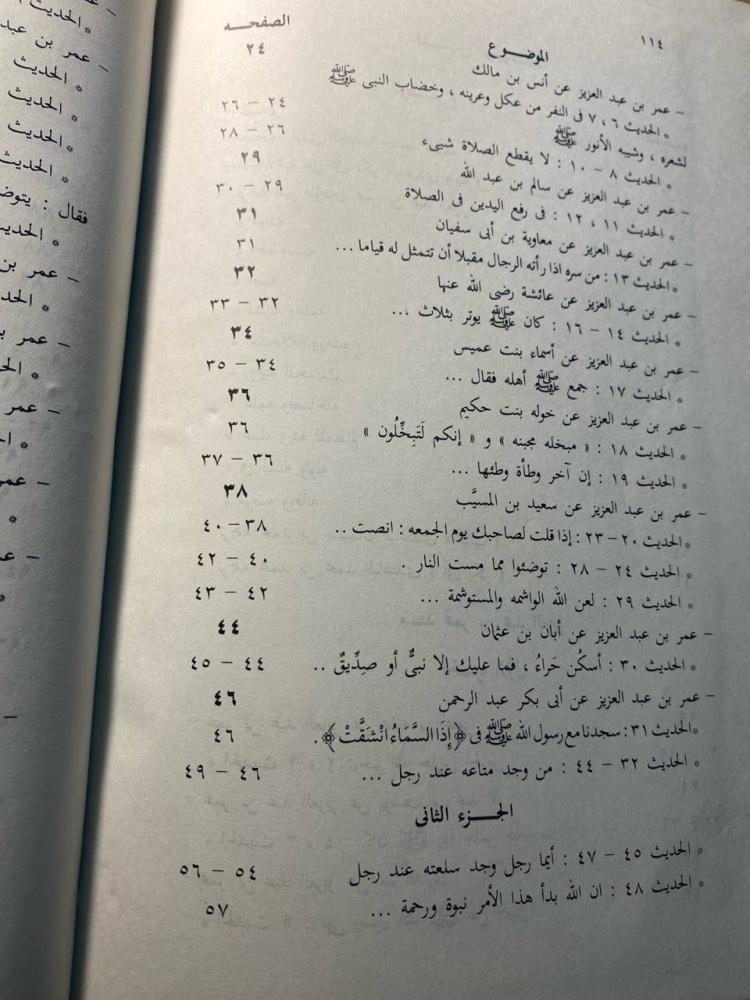 ١١٤
الموضـــوع الصفحـــه
– عمر بن عبد العزيز عن أنس بن مالك ٢٤
* الحديث ٦ ، ٧ فى النفر من عكل وعرينه ، وخضاب النبى ﷺ
لشعره ، وشيبه الأنور ﷺ ٢٤ – ٢٦
* الحديث ٨ – ١٠ : لا يقطع الصلاة شيىء ٢٦ – ٢٨
– عمر بن عبد العزيز عن سالم بن عبد الله ٢٩
* الحديث ١١ ، ١٢ : فى رفع اليدين فى الصلاة ٢٩ – ٣٠
– عمر بن عبد العزيز عن معاوية بن أبى سفيان ٣١
* الحديث ١٣ : من سره اذا رأته الرجال مقبلا أن تتمثل له قياما ... ٣١
– عمر بن عبد العزيز عن عائشة رضى الله عنها ٣٢
* الحديث ١٤ – ١٦ : كان ﷺ يوتر بثلاث ... ٣٢ – ٣٣
– عمر بن عبد العزيز عن أسماء بنت عميس ٣٤
* الحديث ١٧ : جمع ﷺ أهله فقال ... ٣٤ – ٣٥
– عمر بن عبد العزيز عن خوله بنت حكيم ٣٦
* الحديث ١٨ : « مبخله مجبنه » و « إنكم لَتَبخِّلُون » ٣٦
* الحديث ١٩ : إن آخر وطأة وطئها ... ٣٦ – ٣٧
– عمر بن عبد العزيز عن سعيد بن المسيَّب ٣٨
* الحديث ٢٠ – ٢٣ : إذا قلت لصاحبك يوم الجمعه : انصت .. ٣٨ – ٤٠
* الحديث ٢٤ – ٢٨ : توضئوا مما مست النار . ٤٠ – ٤٢
* الحديث ٢٩ : لعن الله الواشمه والمستوشمة ... ٤٢ – ٤٣
– عمر بن عبد العزيز عن أبان بن عثمان ٤٤
* الحديث ٣٠ : أسكُن حَراءُ ، فما عليك إلا نبىٌّ أو صِدِّيقٌ .. ٤٤ – ٤٥
– عمر بن عبد العزيز عن أبى بكر عبد الرحمن ٤٦
* الحديث ٣١ : سجدنا مع رسول الله ﷺ فى ﴿إِذَا السَّمَاءُ انْشَقَّتْ﴾ . ٤٦
* الحديث ٣٢ – ٤٤ : من وجد متاعه عند رجل ... ٤٦ – ٤٩
الجـــزء الثانى
* الحديث ٤٥ – ٤٧ : أيما رجل وجد سلعته عند رجل ٥٤ – ٥٦
* الحديث ٤٨ : ان الله بدأ هذا الأمر نبوة ورحمة ... ٥٧
* الحديث
– عمر بن عبد
* الحديث
* الحديث
* الحديث
* الحديث
فقال :
– عمر بن
– عمر
– عمر
– عمر